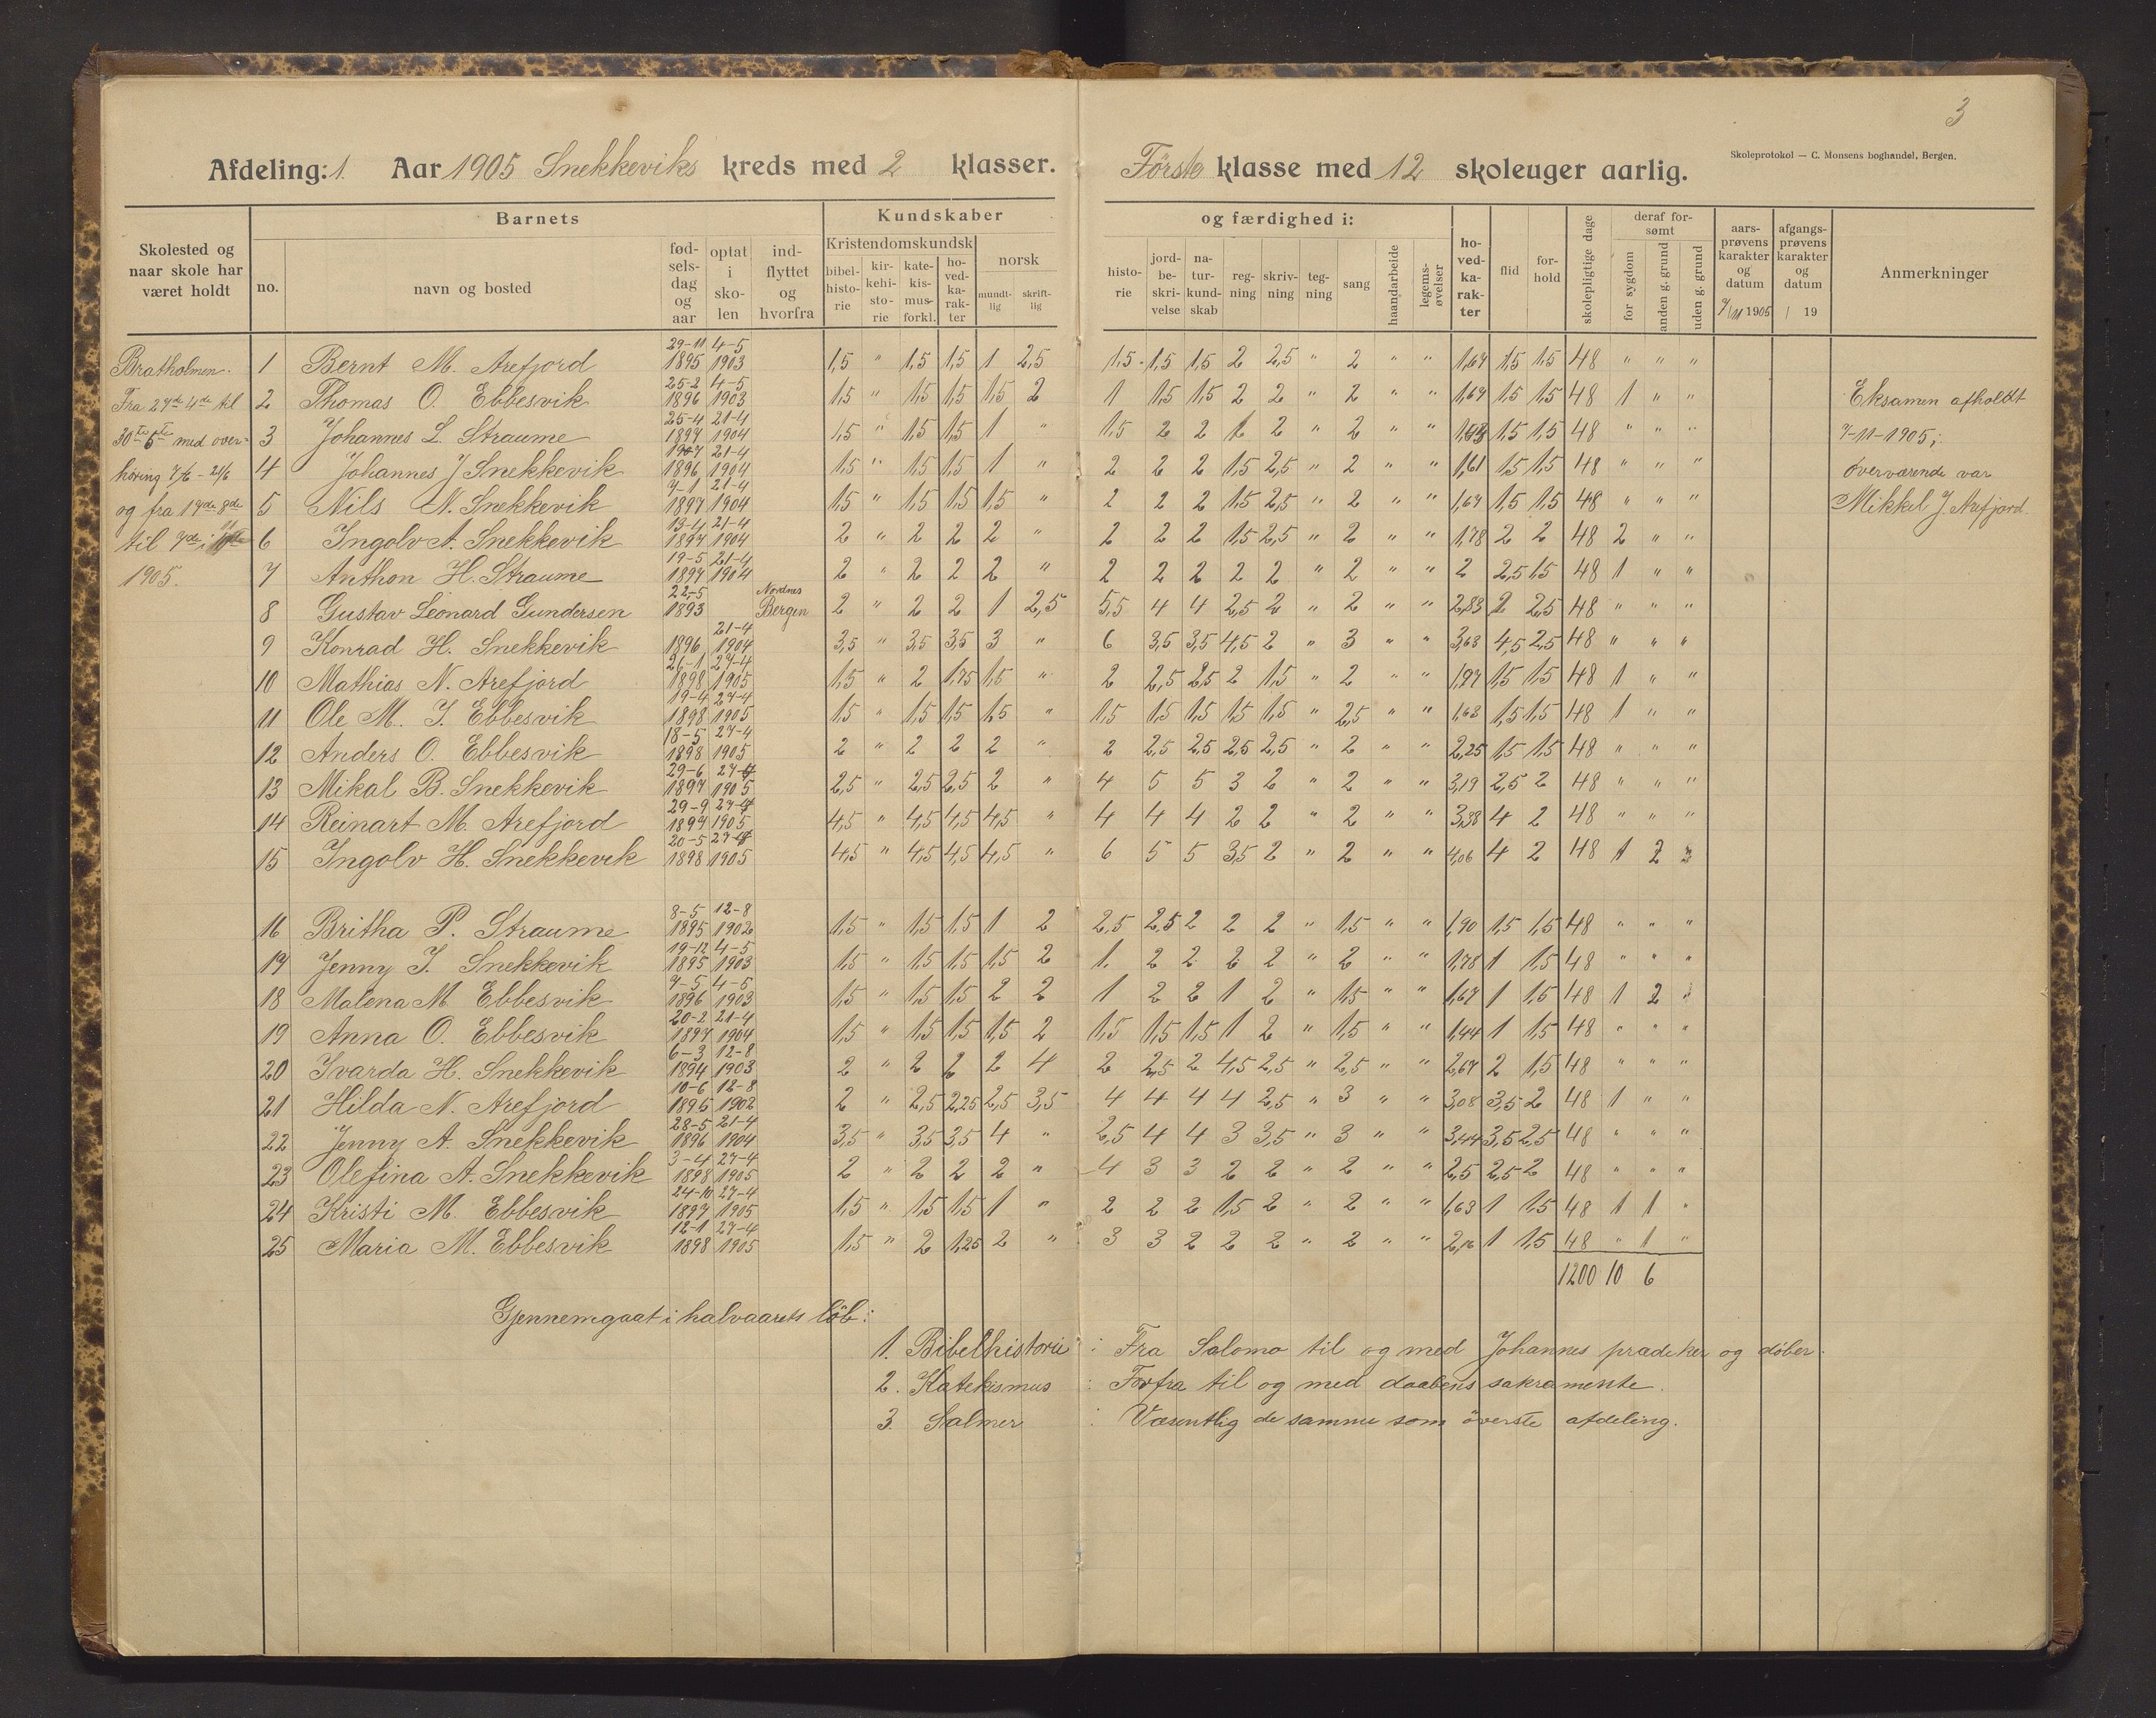 3
Afdeling: 1. Aar 1905 Snekkeviks kreds med 2 klasser. Første klasse med 12 skoleuger aarlig.
Skoleprotokol — C. Monsens boghandel, Bergen.
Skolested og naar skole har været holdt
Barnets
no.
navn og bosted
fødselsdag og aar
optat i skolen
indflyttet og hvorfra
Kundskaber og færdighed i:
Kristendomskundsk
bibelhistorie
kirkehistorie
katekismusforkl.
hovedkarakter
norsk
mundtlig
skriftlig
historie
jordbeskrivelse
naturkundskab
regning
skrivning
tegning
sang
haandarbeide
legemsøvelser
hovedkarakter
flid
forhold
skolepligtige dage
deraf forsømt
for sygdom
anden g. grund
uden g. grund
aarsprøvens karakter og datum 7/11 1905
afgangsprøvens karakter og datum / 19
Anmerkninger
Bratholmen.
Fra 27de 4de til
30te 5te med over-
høring 7/6 - 21/6
og fra 17de 8de
til 7de i 11te
1905.
1 Bernt M. Arefjord 29-11 1895 4-5 1903 1,5 " 1,5 1,5 1 2,5 1,5 1,5 1,5 2 2,5 " 2 " " 1,67 1,5 1,5 48 " " "
2 Thomas O. Ebbesvik 25-2 1896 4-5 1903 1,5 " 1,5 1,5 1,5 2 1 1,5 1,5 2 2 " 2 " " 1,67 1,5 1,5 48 1 " "
3 Johannes L. Straume 25-4 1897 21-4 1904 1,5 " 1,5 1,5 1 " 1,5 2 2 1 2 " 2 " " 1,5 1,5 48 " " "
4 Johannes J Snekkevik 1896 21-4 1904 1,5 " 1,5 1,5 1 " 2 2 2 1,5 2,5 " 2 " " 1,61 1,5 1,5 48 " " "
5 Nils N. Snekkevik 7-1 1897 21-4 1904 1,5 " 1,5 1,5 1,5 " 2 2 2 1,5 2,5 " 2 " " 1,67 1,5 1,5 48 " " "
6 Ingolv A. Snekkevik 13-4 1897 21-4 1904 2 " 2 2 2 " 2 2 2 1,5 2,5 " 2 " " 1,78 2 2 48 2 " "
7 Anthon H. Straume 19-5 1897 21-4 1904 2 " 2 2 2 " 2 2 2 2 2 " 2 " " 2 2,5 1,5 48 1 " "
8 Gustav Leonard Gundersen 22-5 1893 Nordnes Bergen 2 " 2 2 1 2,5 5,5 4 4 2,5 2 " 2 " " 2,83 2 2,5 48 " " "
9 Konrad H. Snekkevik 1896 21-4 1904 3,5 " 3,5 3,5 3 " 6 3,5 3,5 4,5 2 " 3 " " 3,63 4,5 2,5 48 " " "
10 Mathias N. Arefjord 26-1 1898 27-4 1905 1,5 " 2 1,75 1,5 " 2 2,5 2,5 2 1,5 " 2 " " 1,97 1,5 1,5 48 1 " "
11 Ole M. J. Ebbesvik 19-4 1898 27-4 1905 1,5 " 1,5 1,5 1,5 " 1,5 1,5 1,5 1,5 1,5 " 2,5 " " 1,63 1,5 1,5 48 1 " "
12 Anders O. Ebbesvik 18-5 1898 27-4 1905 2 " 2 2 2 " 2 2,5 2,5 2,5 2,5 " 2 " " 2,25 1,5 1,5 48 " " "
13 Mikal B. Snekkevik 29-6 1897 27-4 1905 2,5 " 2,5 2,5 2 " 4 5 5 3 2 " 2 " " 3,19 2,5 2 48 " " "
14 Reinart M. Arefjord 29-9 1897 27-4 1905 4,5 " 4,5 4,5 4,5 " 4 4 4 2 2 " 2 " " 3,38 4 2 48 " " "
15 Ingolv H. Snekkevik 20-5 1898 27-4 1905 4,5 " 4,5 4,5 4,5 " 6 5 5 3,5 2 " 2 " " 4,06 4 2 48 1 2 "
16 Britha P. Straume 8-5 1895 12-8 1902 1,5 " 1,5 1,5 1 2 2,5 2,5 2 2 2 " 1,5 " " 1,90 1,5 1,5 48 " " "
17 Jenny J. Snekkevik 19-12 1895 4-5 1903 1,5 " 1,5 1,5 1,5 2 1. 2 2 2 2 " 2 " " 1,78 1 1,5 48 " " "
18 Malena M. Ebbesvik 7-5 1896 4-5 1903 1,5 " 1,5 1,5 2 2 1 2 2 1 2 " 1,5 " " 1,67 1 1,5 48 1 2 "
19 Anna O. Ebbesvik 20-2 1897 21-4 1904 1,5 " 1,5 1,5 1,5 2 1,5 1,5 1,5 1 2 " 1,5 " " 1,44 1 1,5 48 " " "
20 Ivarda H. Snekkevik 6-3 1894 12-8 1903 2 " 2 2 2 4 2 2,5 2 4,5 2,5 " 2,5 " " 2,67 2 1,5 48 " " "
21 Hilda N. Arefjord 10-6 1895 12-8 1902 2 " 2,5 2,25 2,5 3,5 4 4 4 4 2,5 " 3 " " 3,08 3,5 2 48 1 " "
22 Jenny A. Snekkevik 28-5 1896 21-4 1904 3,5 " 3,5 3,5 4 " 2,5 4 4 3 3,5 " 3 " " 3,44 3,5 2,5 48 " " "
23 Olefina A. Snekkevik 3-4 1898 27-4 1905 2 " 2 2 2 " 4 3 3 2 2 " 2 " " 2,5 2,5 2 48 " " "
24 Kristi M. Ebbesvik 24-10 1897 27-4 1905 1,5 " 1,5 1,5 1 " 2 2 2 1,5 2 " 2 " " 1,63 1 1,5 48 1 1 "
25 Maria M. Ebbesvik 12-1 1898 27-4 1905 1,5 " 2 1,25 2 " 3 3 2 2 2 " 2 " " 2,16 1 1,5 48 " 1 "
1200 10 6
Eksamen afholdt
7-11-1905;
overværende var
Mikkel J. Arefjord.
Gjennemgaat i halvaarets løb:
1. Bibelhistorie : Fra Salomo til og med Johannes prædiker og døber.
2. Katekismus : Forfra til og med daabens sakramente.
3. Salmer : Væsentlig de samme som överste afdeling.